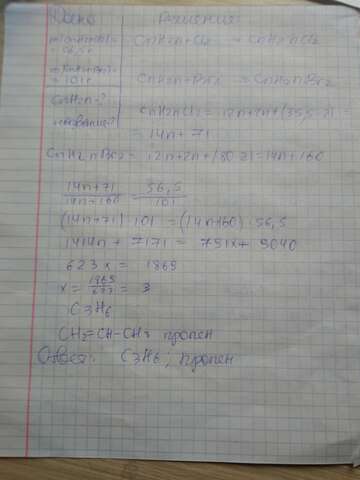 Дано
Решение:
m(CnH2nCl2)=
= 56,5г
CnH2n + Cl2 → CnH2nCl2
m(CnH2nBr2)=
= 101г
CnH2n + Br2 → CnH2nBr2
CnH2n - ?
название - ?
CnH2nCl2 = 12n + 2n + (35,5·2) =
= 14n + 71
CnH2nBr2 = 12n + 2n + (80·2) = 14n + 160
14n + 71 / 14n + 160 = 56,5 / 101
(14n + 71) · 101 = (14n + 160) · 56,5
1414n + 7171 = 791x + 9040
623x = 1869
x = 1869 / 623 = 3
C3H6
CH2=CH-CH3 пропен
Ответ: C3H6; пропен